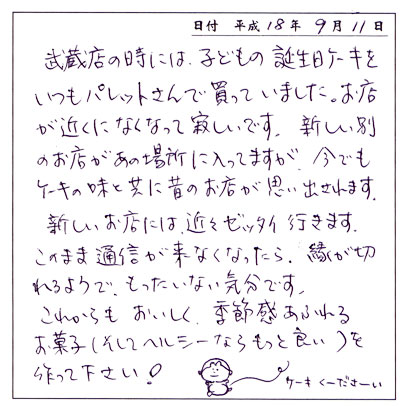 日付 平成18年 9月11日
武蔵店の時には、子どもの誕生日ケーキを
いつもパレットさんで買っていました。お店
が近くになくなって寂しいです。新しい別
のお店があの場所に入ってますが、今でも
ケーキの味と共に昔のお店が思い出されます。
新しいお店には、近々ゼッタイ行きます。
このまま通信が来なくなったら、縁が切
れるようで、もったいない気分です。
これからも おいしく、季節感あふれる
お菓子(そしてヘルシーならもっと良い)を
作って下さい!
ケーキ くーださーい